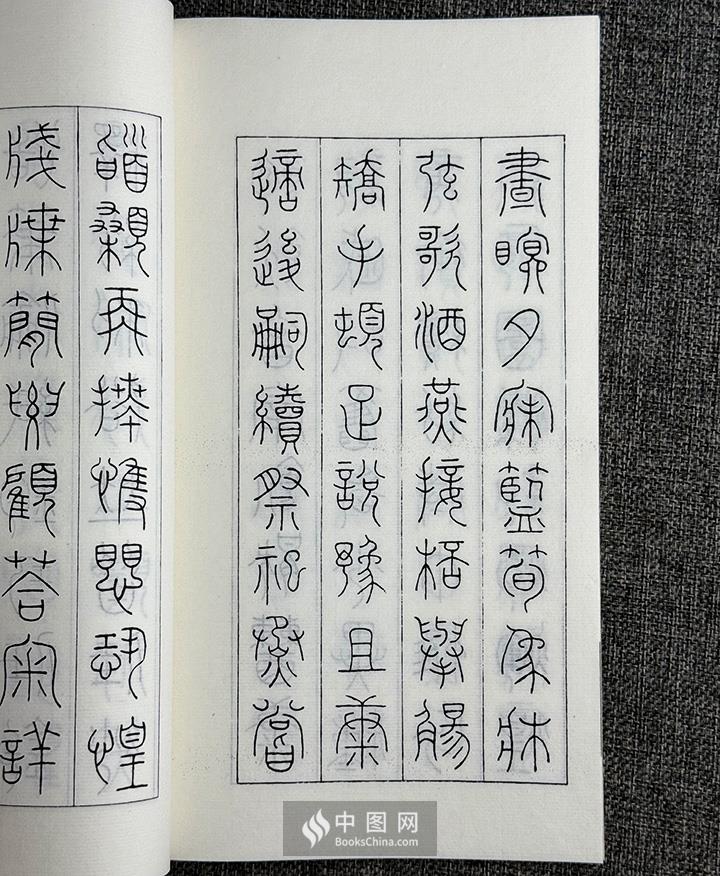 晝瞑夕寐籃筍象牀
弦歌酒燕接桮舉觴
矯手頓足說豫且康
適後嗣續祭祀烝嘗
䭫顙再拜愯愳恐惶
牋牒簡要顧荅宷詳
中图网
BooksChina.com